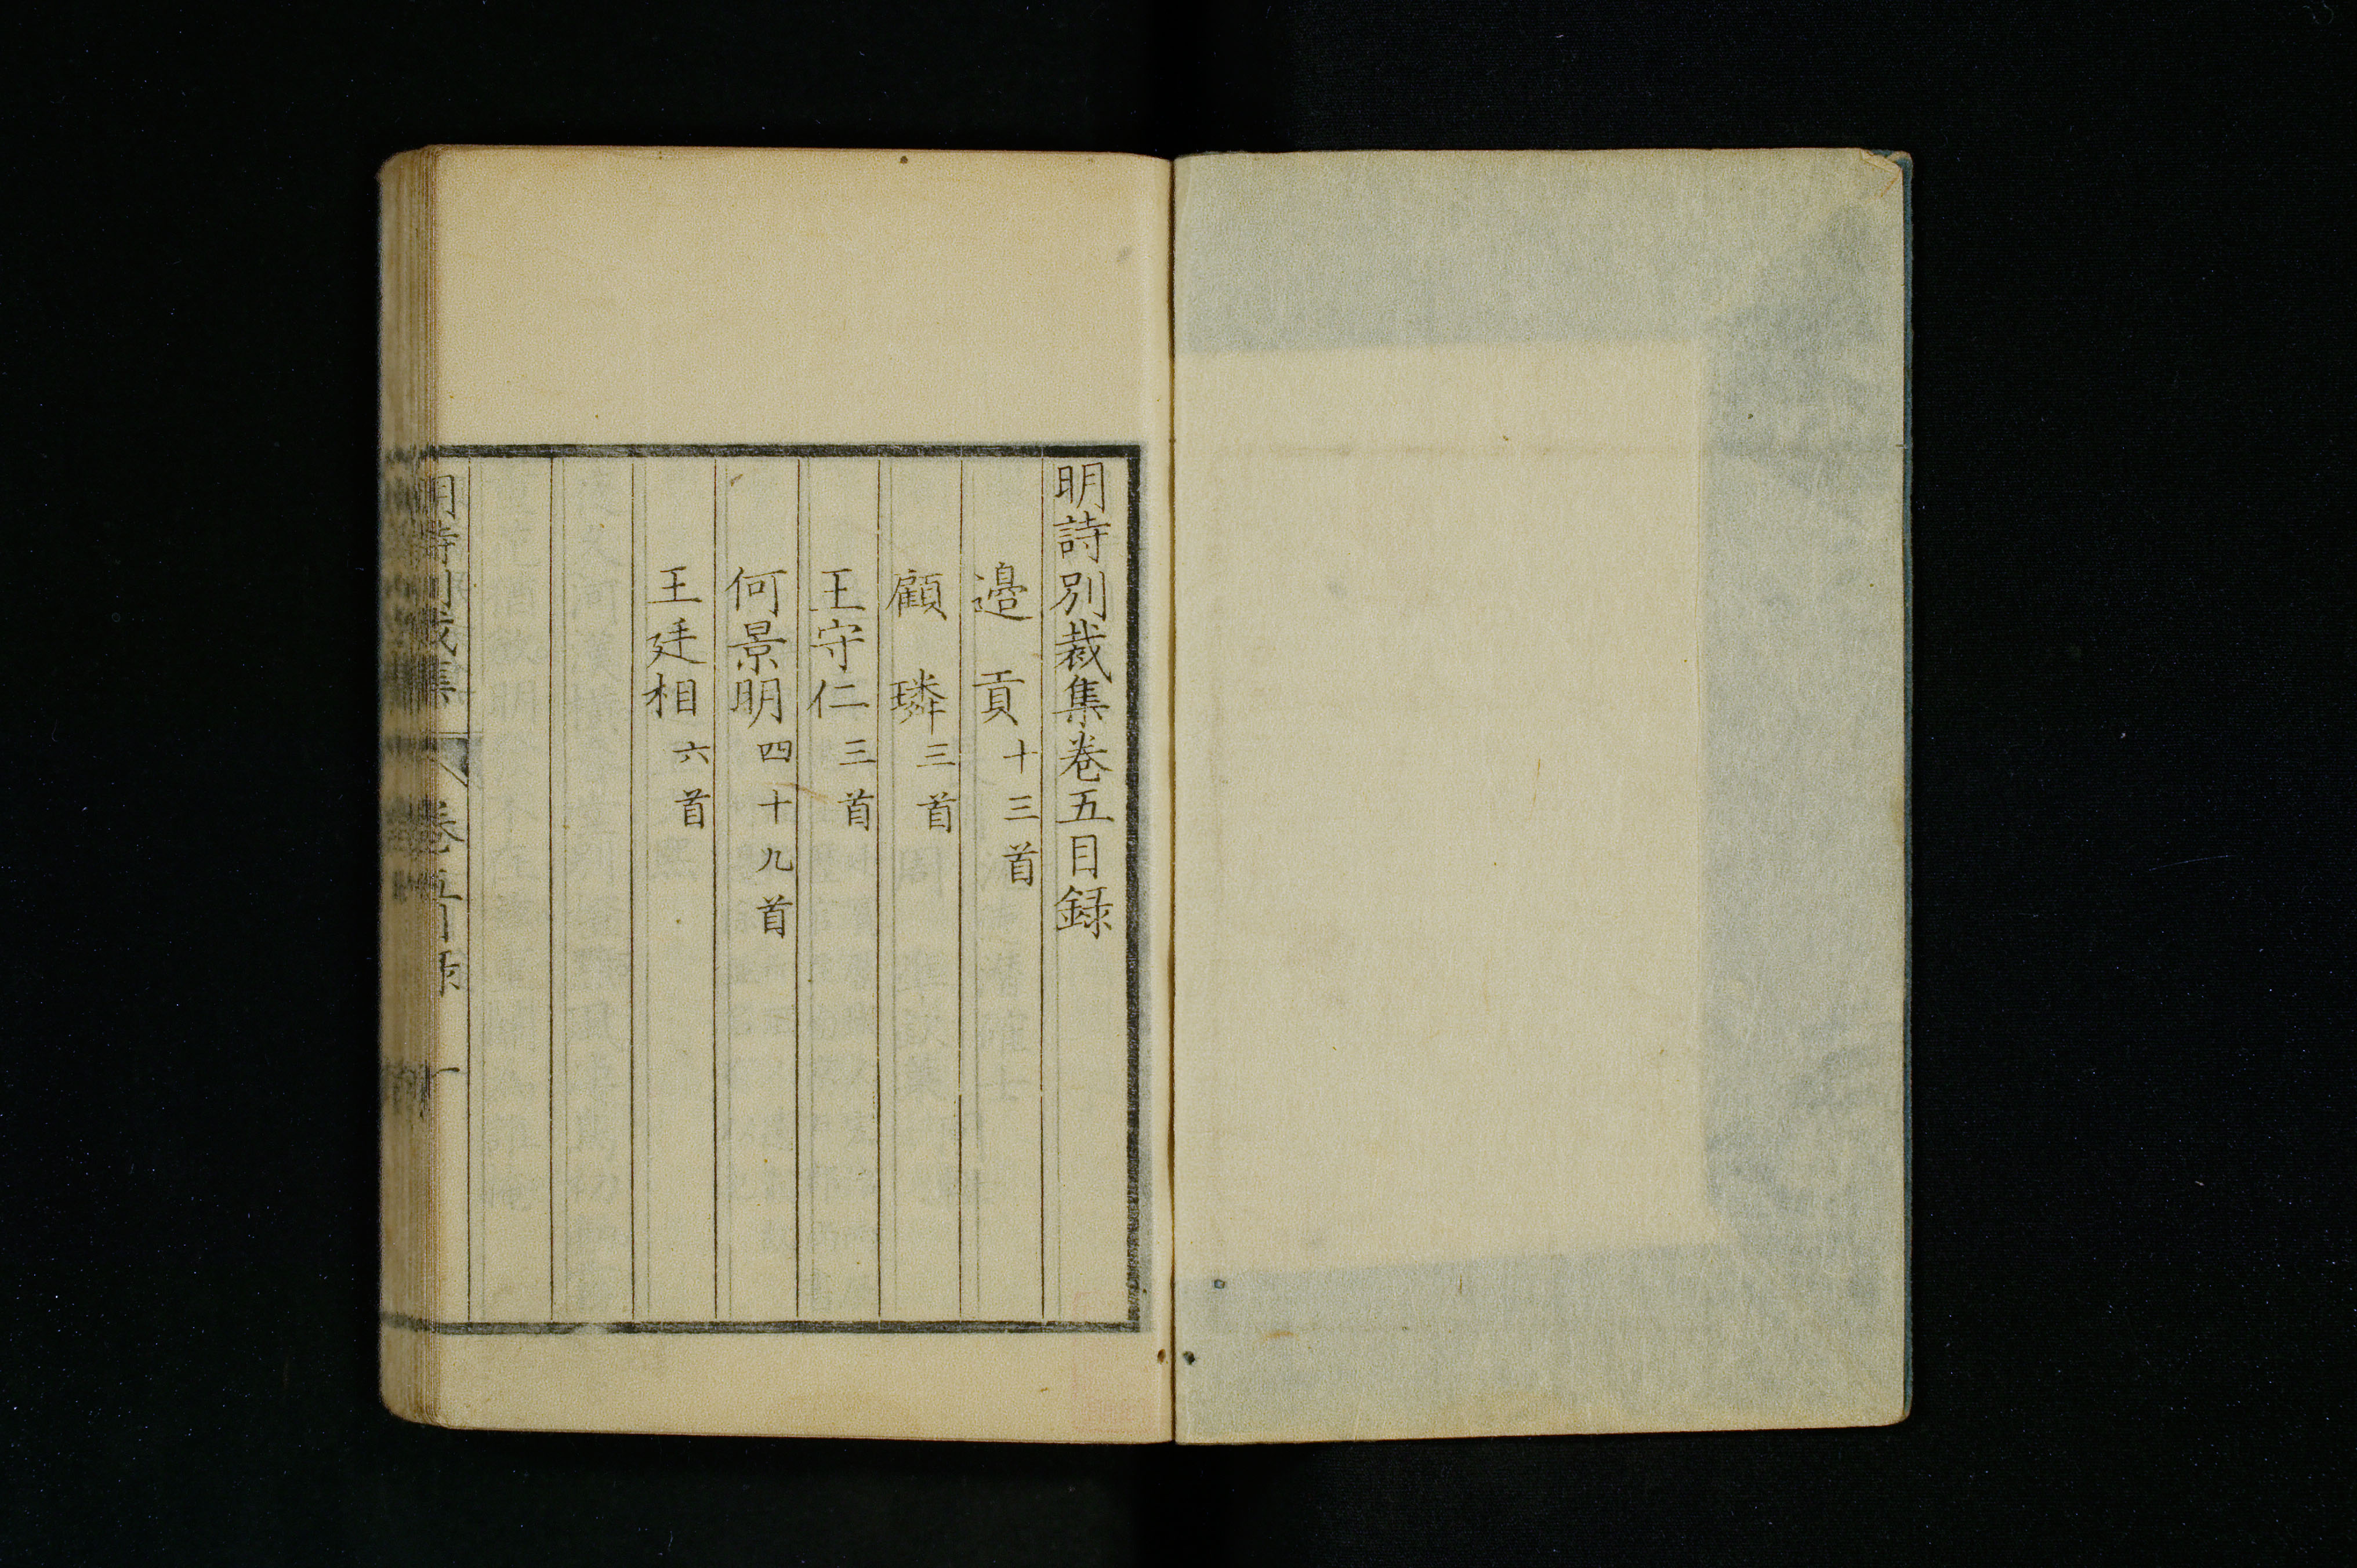 明詩別裁集卷五目錄
邉貢十三首
顧璘三首
王守仁三首
何景明四十九首
王廷相六首
明詩別裁集 卷五目錄 一